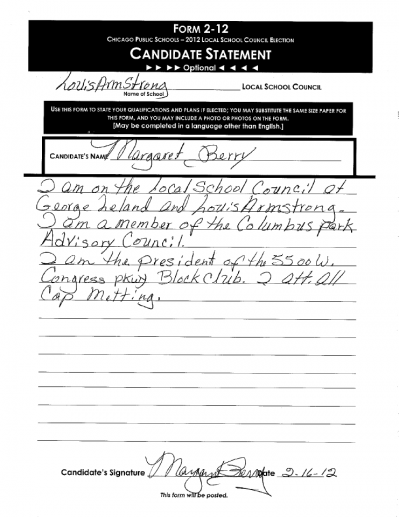 FORM 2-12
CHICAGO PUBLIC SCHOOLS – 2012 LOCAL SCHOOL COUNCIL ELECTION
CANDIDATE STATEMENT
►►►► Optional ◄◄◄◄
Louis Armstrong LOCAL SCHOOL COUNCIL
Name of School
USE THIS FORM TO STATE YOUR QUALIFICATIONS AND PLANS IF ELECTED; YOU MAY SUBSTITUTE THE SAME SIZE PAPER FOR
THIS FORM, AND YOU MAY INCLUDE A PHOTO OR PHOTOS ON THE FORM.
[May be completed in a language other than English.]
CANDIDATE'S NAME Margaret Berry
I am on the Local School Council at
George Leland and Louis Armstrong.
I am a member of the Columbus park
Advisory Council.
I am the president of the 5500 W.
Congress pkwy Block Club. I att. all
Cap Metting.
Candidate's Signature Margaret Berry Date 2-16-12
This form will be posted.